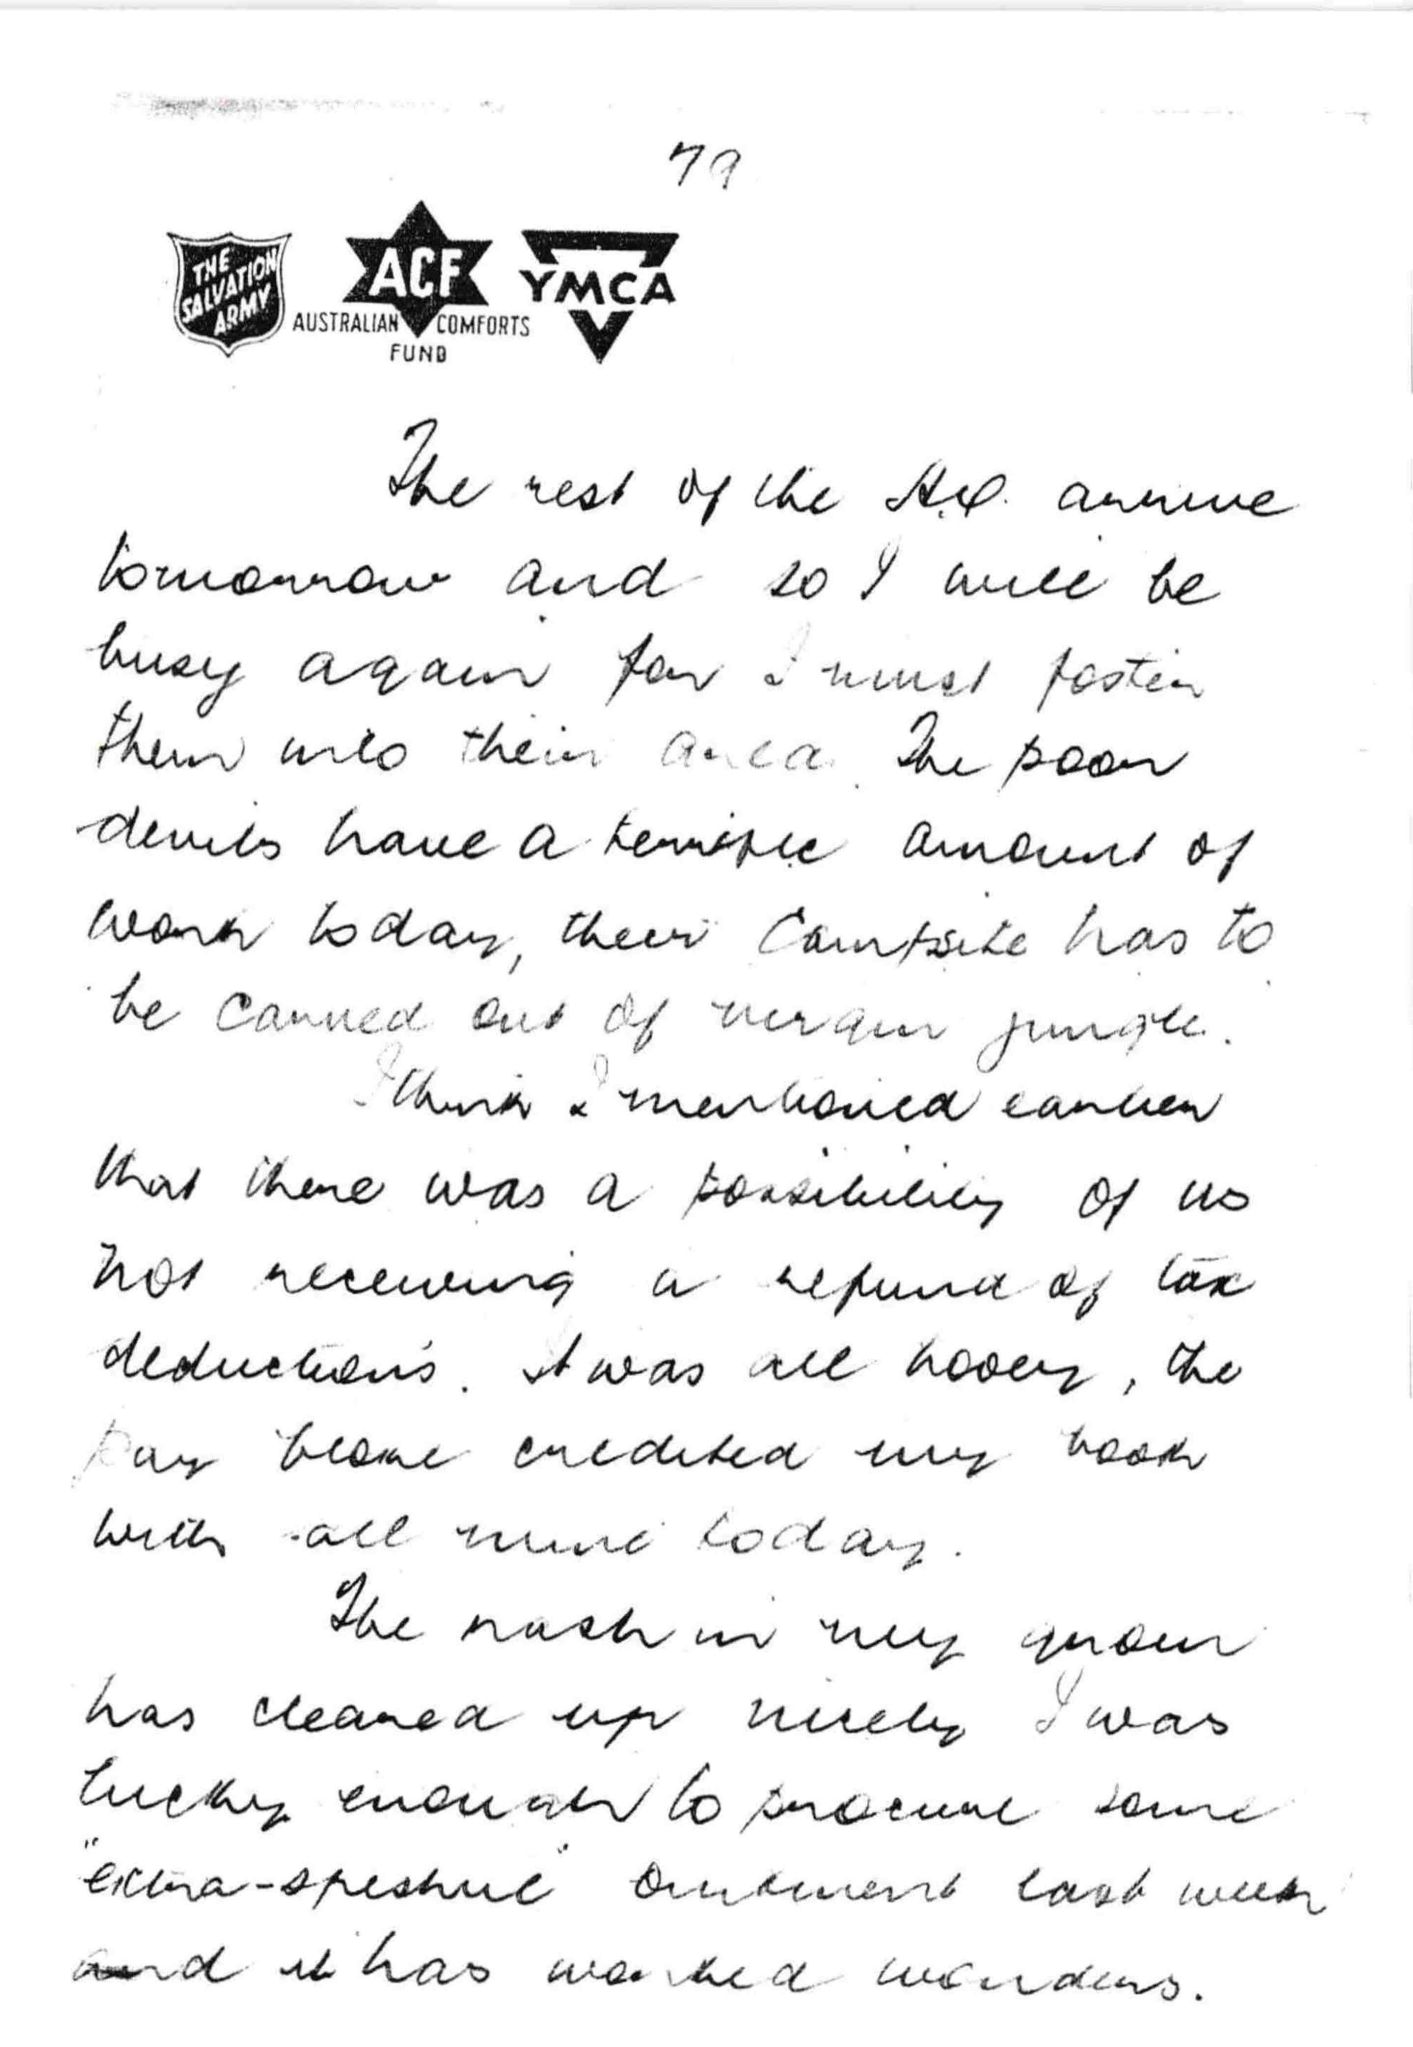 79
THE
SALVATION
ARMY
ACF
AUSTRALIAN COMFORTS
FUND
YMCA
The rest of the H.Q. arrive
tomorrow and so I will be
busy again for I must foster
them into their area. The poor
devils have a terrific amount of
work today, their campsite has to
be carved out of virgin jungle.
I think I mentioned earlier
that there was a possibility of us
not receiving a refund of tax
deductions. It was all hooey, the
pay bloke credited my book
with all mine today.
The rash in my groin
has cleared up nicely I was
lucky enough to procure some
"extra-speshul" ointment last week
and it has worked wonders.